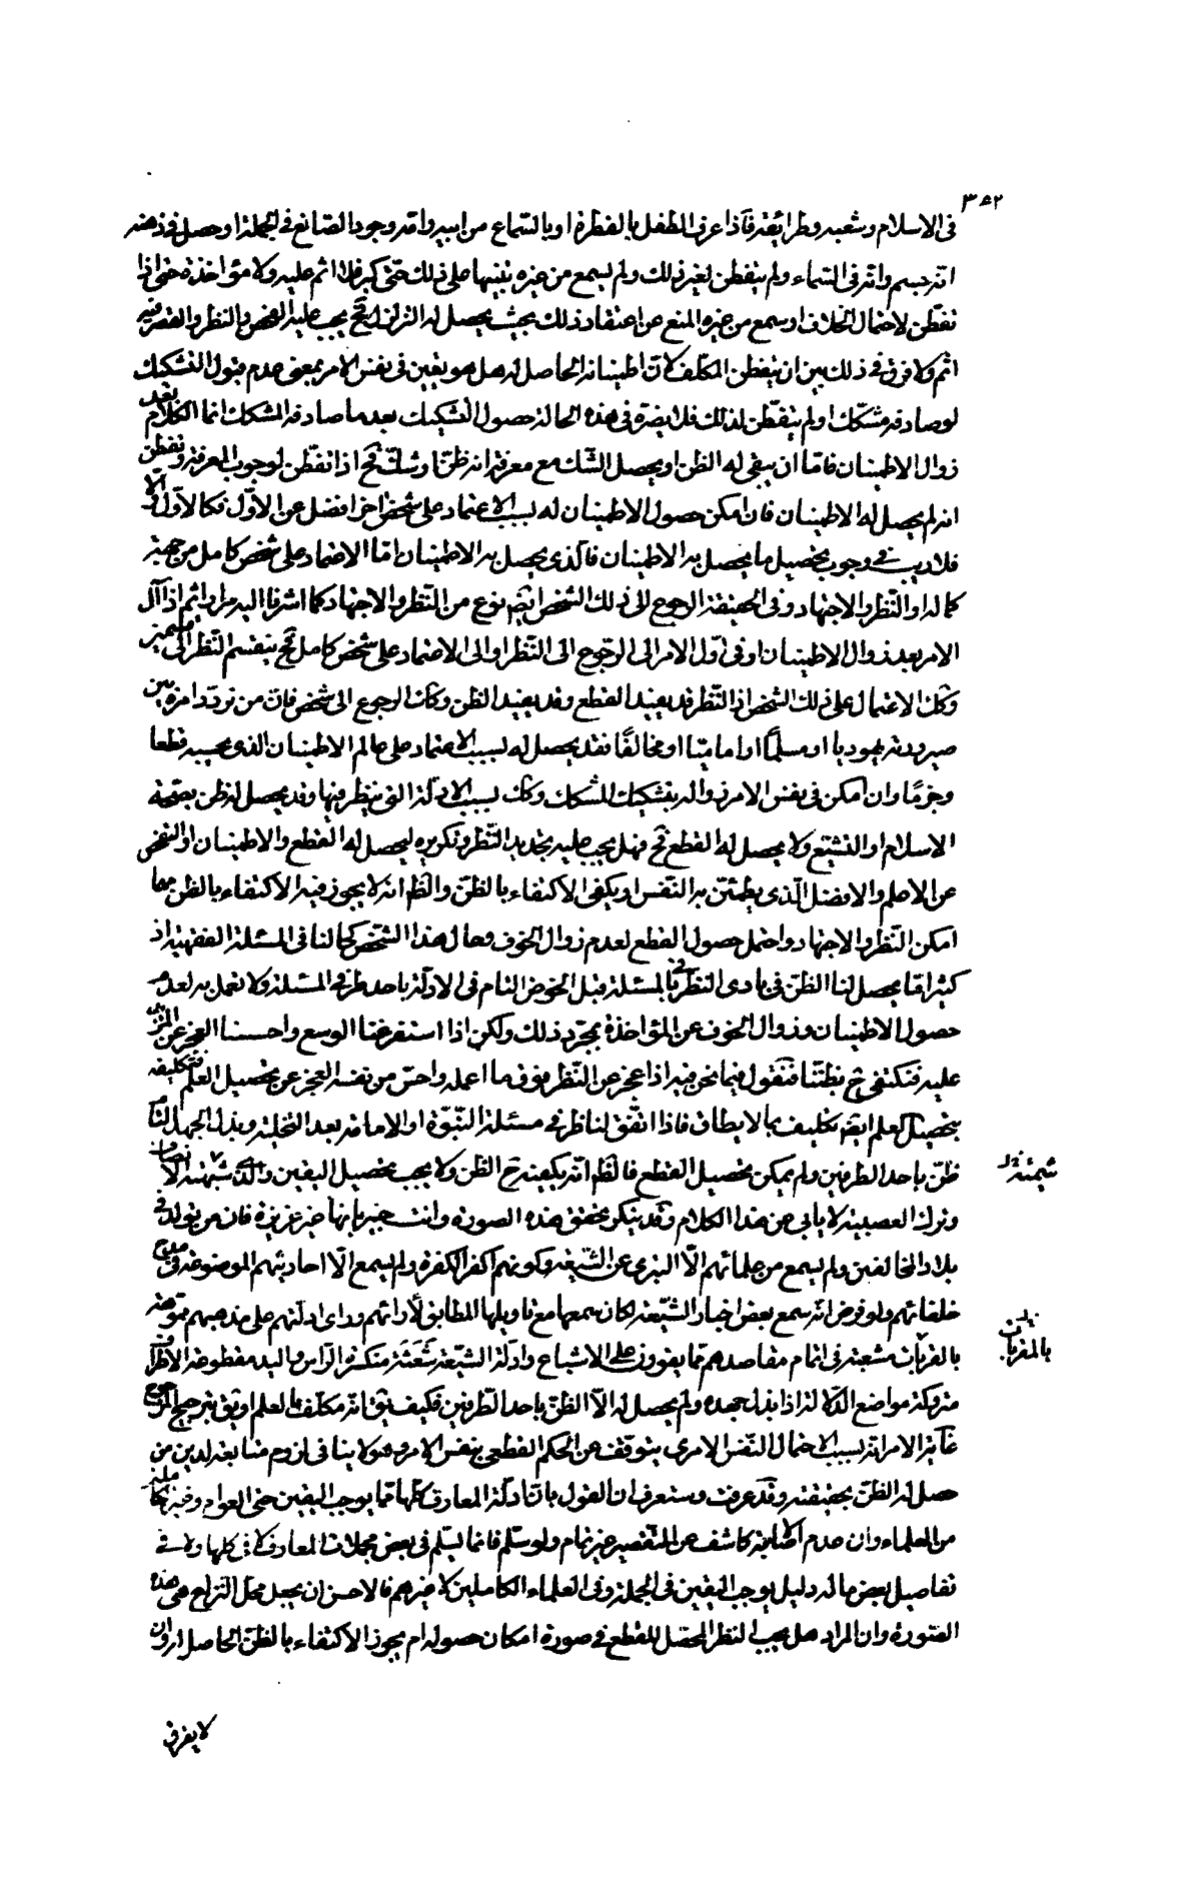 ٣٥٢
فى الاسلام وشعبه وطرائقه فاذا عرف الطفل بالفطرة او بالسّماع من ابيه وامّه وجود الصّانع فى الجملة او حصل فى ذهنه
انّه جسم وانّه فى السّماء ولم يتفطن لغير ذلك ولم يسمع من غيره تنبيها على ذلك حتّى كبر فلا اثم عليه ولا مؤاخذة حتى اذا
تفطّن لاحتمال الخلاف او سمع من غيره المنع عن اعتقاد ذلك بحيث يحصل له التزلزل فح يجب عليه الفحص والنظر والمقصر فيه
اثم ولا فرق فى ذلك بين ان يتفطن المكلّف لانّ اطمينانه الحاصل له هل هو يقين فى نفس الامر بمعنى عدم قبول التشكيك
لو صادفه مشكّك او لم يتفطّن لذلك فلا يضرّه فى هذه الحالة حصول التشكيك بعد ما صادفه المشكك انما الكلام بعد
زوال الاطمينان فامّا ان يبقى له الظن او يحصل الشّك مع معرفة انه ظنّ او شكّ فح اذا تفطّن لوجوب المعرفة وتفطن
انه لم يحصل له الاطمينان فان امكن حصول الاطمينان له بسبب الاعتماد على شخص اخر افضل عن الاوّل فكالاوّل والّا
فلا ريب فى وجوب تحصيل ما يحصل به الاطمينان فالّذى يحصل به الاطمينان امّا الاعتماد على شخص كامل من جهة
كماله او النّظر والاجتهاد وفى الحقيقة الرجوع الى ذلك الشخص ايضا نوع من النّظر والاجتهاد كما اشرنا اليه مرارا ثم اذا آل
الامر بعد زوال الاطمينان او فى اوّل الامر الى الرّجوع الى النّظر او الى الاعتماد على شخص كامل فح ينقسم النّظر الى قسمين
وكك الاعتماد على ذلك الشخص اذ النّظر قد يفيد القطع وقد يفيد الظن وكك الرجوع الى شخص فان من تردّد امره بين
صيرورته يهوديا او مسلمًا او اماميّا او مخالفًا فقد يحصل له بسبب الاعتماد على عالم الاطمينان الذى يحسبه قطعا
وجزمًا وان امكن فى نفس الامر زواله بتشكيك المشكك وكك بسبب الادلّة التى ينظر فيها وقد يحصل له ظن بحقيّة
الاسلام او التشيّع ولا يحصل له القطع فح فهل يجب عليه تجديد النّظر وتكريره ليحصل له القطع والاطمينان او الفحص
عن الاعلم والافضل الّذى يطمئنّ به النّفس او يكفى الاكتفاء بالظنّ والظّ انه لا يجوز فيه الاكتفاء بالظن مهما
امكن النّظر والاجتهاد واحتمل حصول القطع لعدم زوال الخوف وحال هذا الشخص كحالنا فى المسئلة الفقهيّة اذ
كثيرا مّا يحصل لنا الظنّ فى بادى النظر فى المسئلة قبل الخوض التام فى الادلّة باحد طرفى المسئلة ولا نعمل به لعدم
حصول الاطمينان وزوال الخوف عن المؤاخذة بمجرّد ذلك ولكن اذا استفرغنا الوسع واحسسنا العجز عن المزيد
عليه فنكتفى ح بظنّنا فنقول فيما نحن فيه اذا عجز عن النّظر فوق ما اعمله واحسّ من نفسه العجز عن تحصيل العلم فتكليفه
بتحصيل العلم ايضا تكليف بما لا يطاق فاذا اتّفق لناظر فى مسئلة النّبوّة او الامامة بعد التخلية وبذل الجهد التّام
ظنّ باحد الطرفين ولم يمكن تحصيل القطع فالظّ انّه يكفيه ح الظن ولا يجب تحصيل اليقين والانصاف
وترك العصبية لا يابى عن هذا الكلام وقد ينكر تحقق هذه الصورة وانت خبير بانها غير عزيزة فان من تولّد فى
بلاد المخالفين ولم يسمع من علمائهم الّا التبرى عن الشّيعة وكونهم اكفر الكفرة ولم يسمع الّا احاديثهم الموضوعة فى مدح
خلفائهم ولو فرض انّه سمع بعض اخبار الشّيعة لكان سمعها مع تاويلها المطابق لآرائهم وراى ادلّتهم على مذهبهم مموّهة
مشعبة فى اتمام مقاصدهم ممّا يفوق على الاشباع وادلّة الشيّعة شَعَثَة منكسرة الراس واليد مقطوعة الاطراف
متروكة مواضع الدّلالة اذا بذل جهده ولم يحصل له الّا الظنّ باحد الطّرفين فكيف يق انّه مكلّف بالعلم او يق بترجيح المرجوح
غاية الامر انّه بسبب الاحتمال النّفس الامرى يتوقف عن الحكم القطعى بنفس الامر وهو لا ينافى لزوم متابعة لدين من
حصل له الظنّ بحقيقته وقد عرفت وستعرف ان القول بانّ ادلّة المعارف كلّها ممّا يوجب اليقين حتى العوام وغير
من العلماء وان عدم الاصابة كاشف عن التّقصير غير تمام ولو سلّم فانما يسلّم فى بعض مجملات المعارف لا فى كلها ولا فى
تفاصيل بعض ماله دليل يوجب اليقين فى الجملة وفى العلماء الكاملين لا غيرهم فالاحسن ان يجعل محل النزاع هى هذه
الصّورة وان المراد هل يجب النظر المحصّل للقطع فى صورة امكان حصوله ام يجوز الاكتفاء بالظنّ الحاصل له وان
لا يفرق